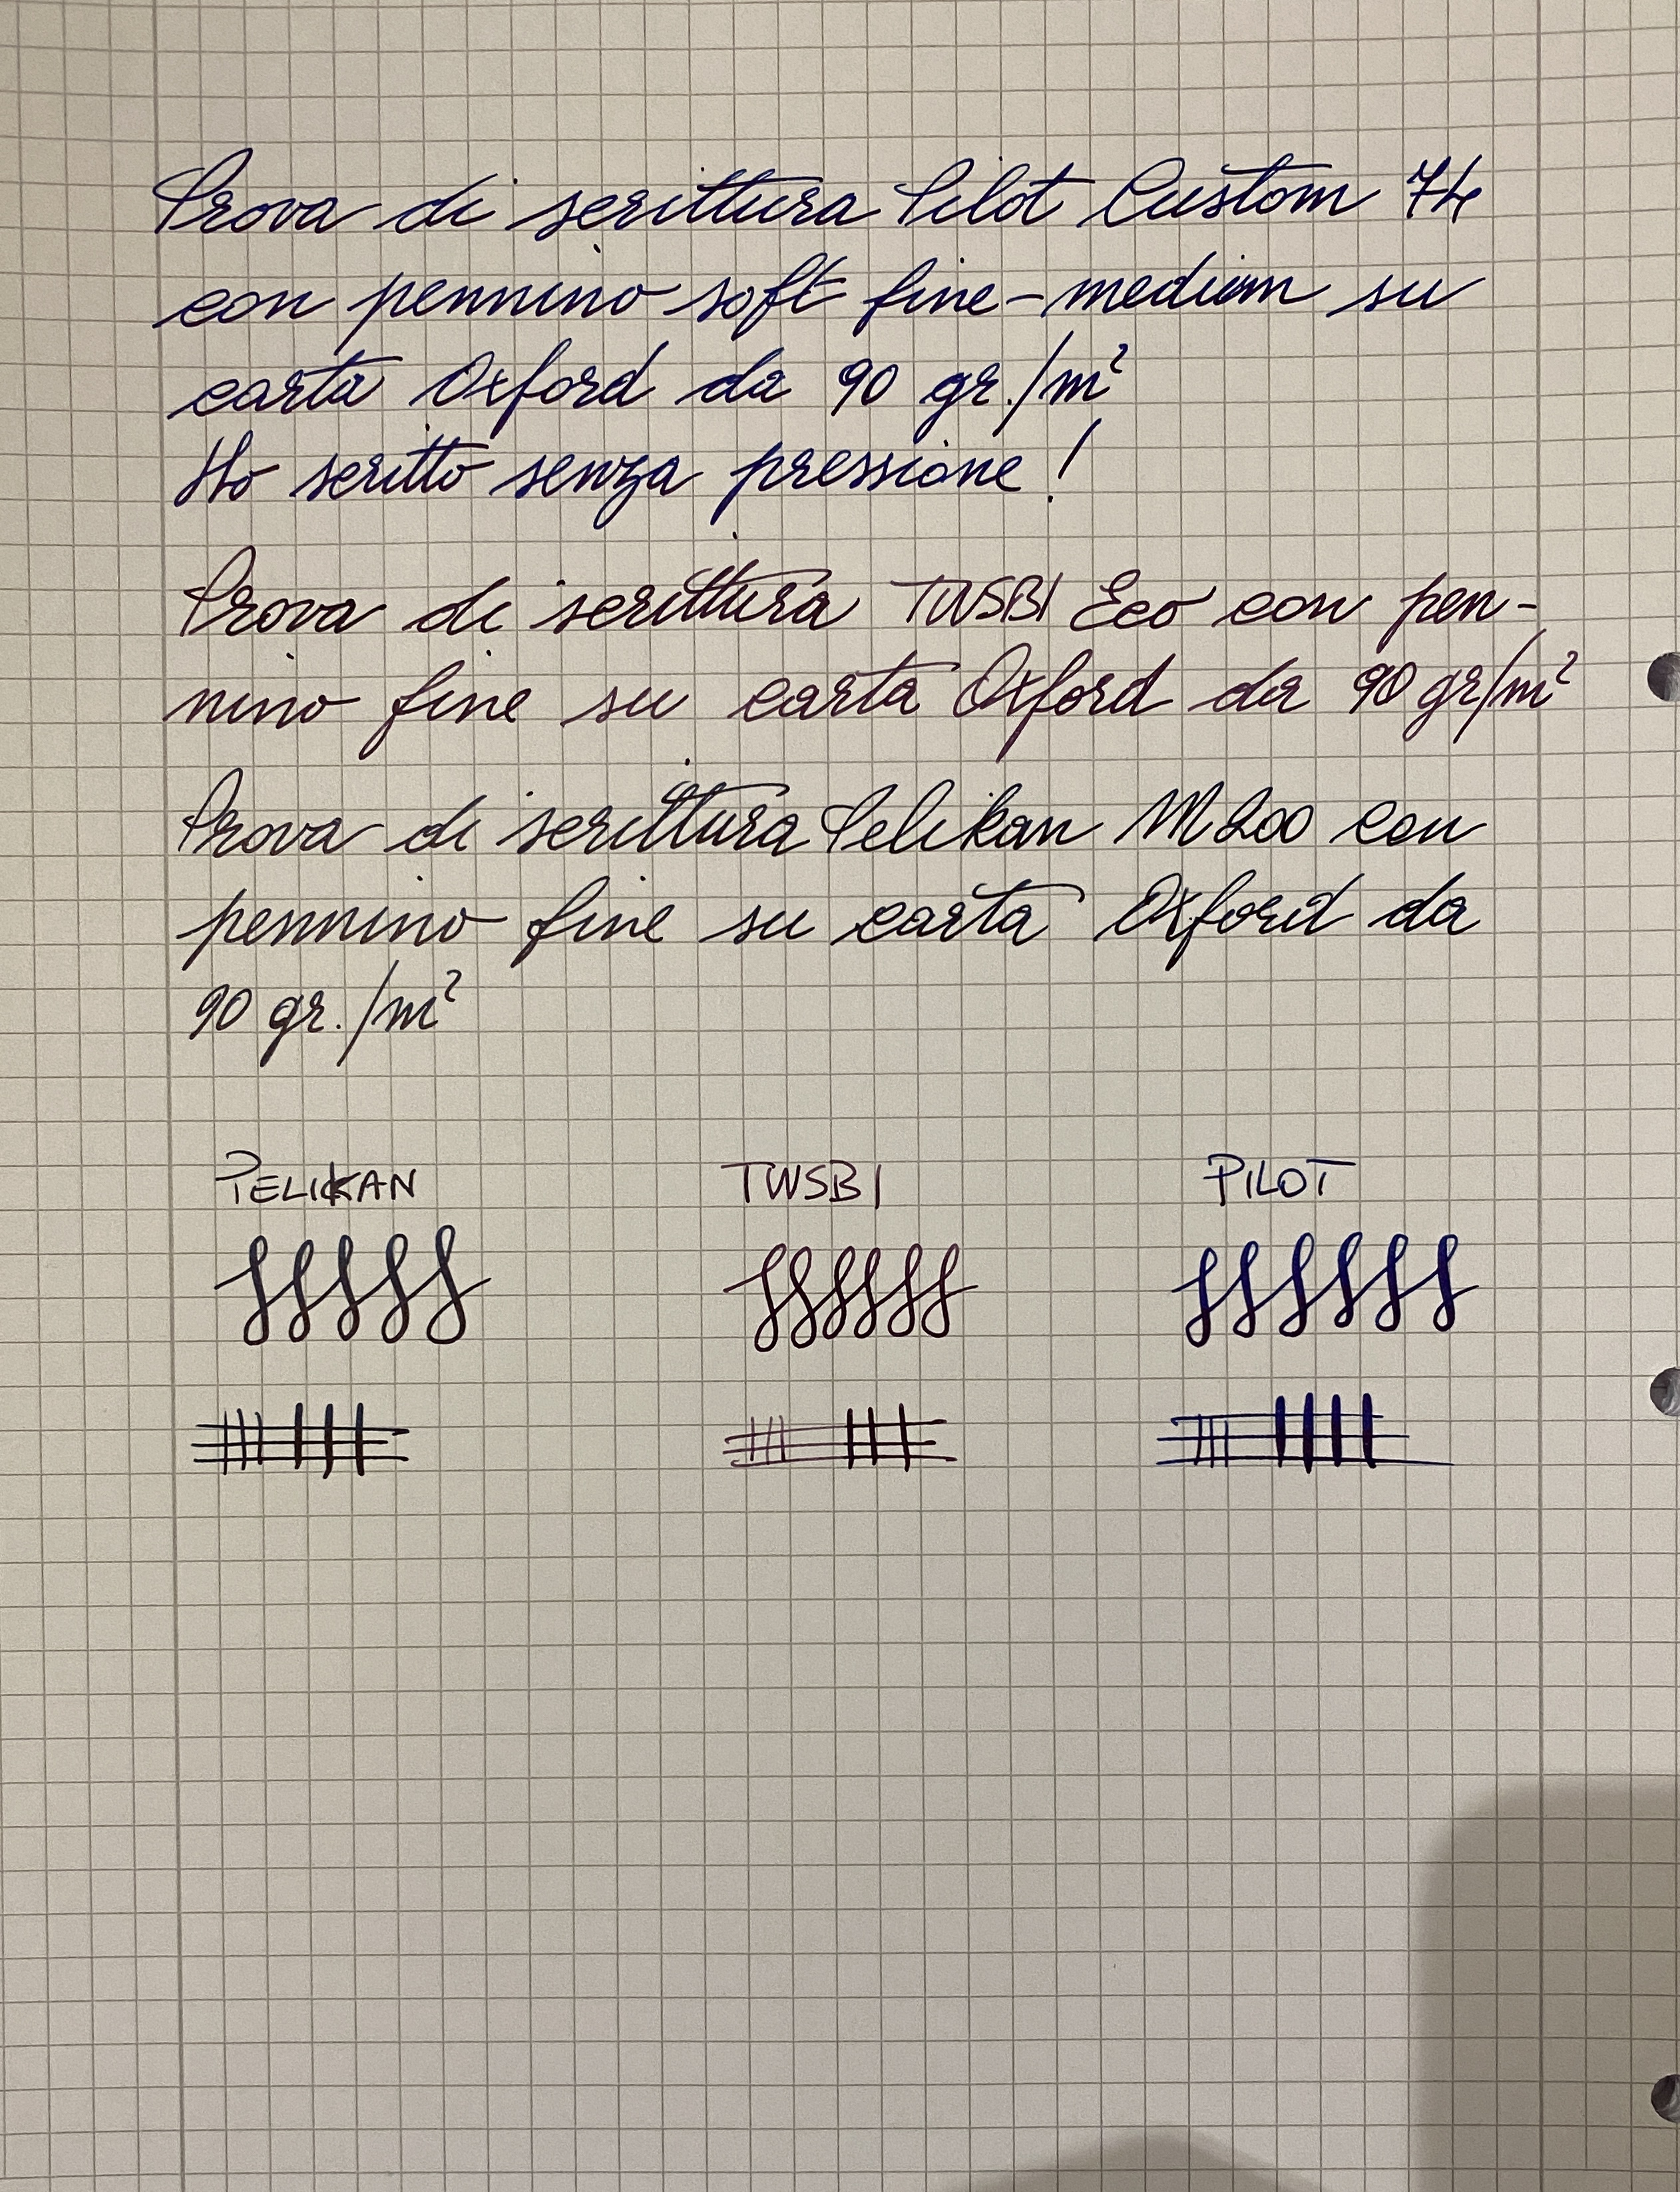 Prova di scrittura Pilot Custom 74
con pennino soft fine-medium su
carta Oxford da 90 gr./m²
Ho scritto senza pressione!
Prova di scrittura TWSBI Eco con pen-
nino fine su carta Oxford da 90 gr/m²
Prova di scrittura Pelikan M200 con
pennino fine su carta Oxford da
90 gr./m²
PELIKAN TWSBI PILOT